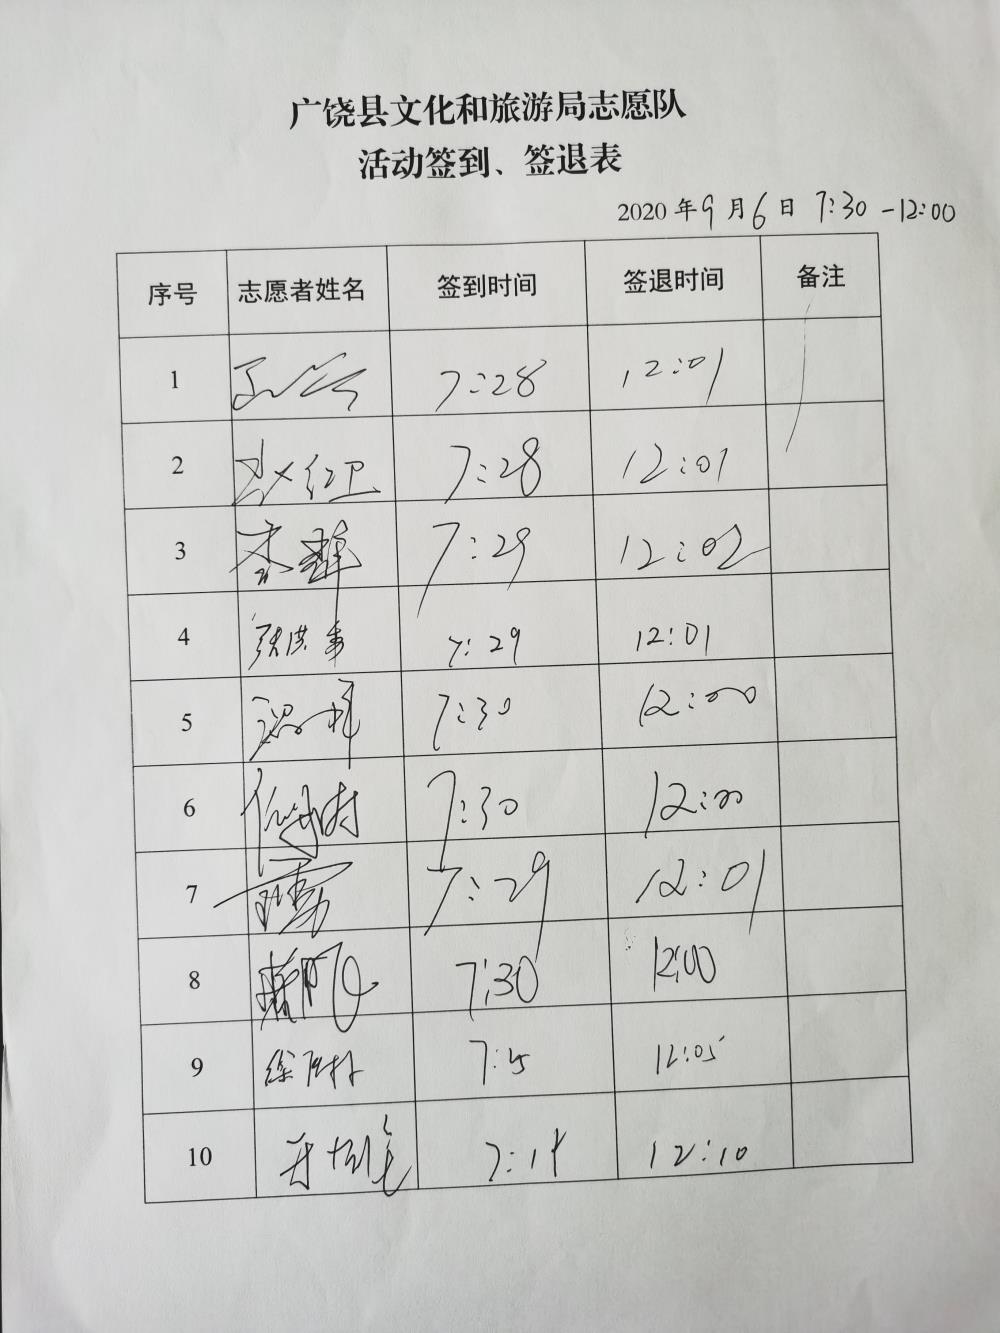 广饶县文化和旅游局志愿队
活动签到、签退表
2020 年 9 月 6 日 7:30 -12:00
序号 志愿者姓名 签到时间 签退时间 备注
1 7:28 12:01
2 赵红卫 7:28 12:01
3 李 7:29 12:02
4 张洪 7:29 12:01
5 7:30 12:00
6 7:30 12:00
7 7:29 12:01
8 7:30 12:00
9 徐 12:05
10 12:10